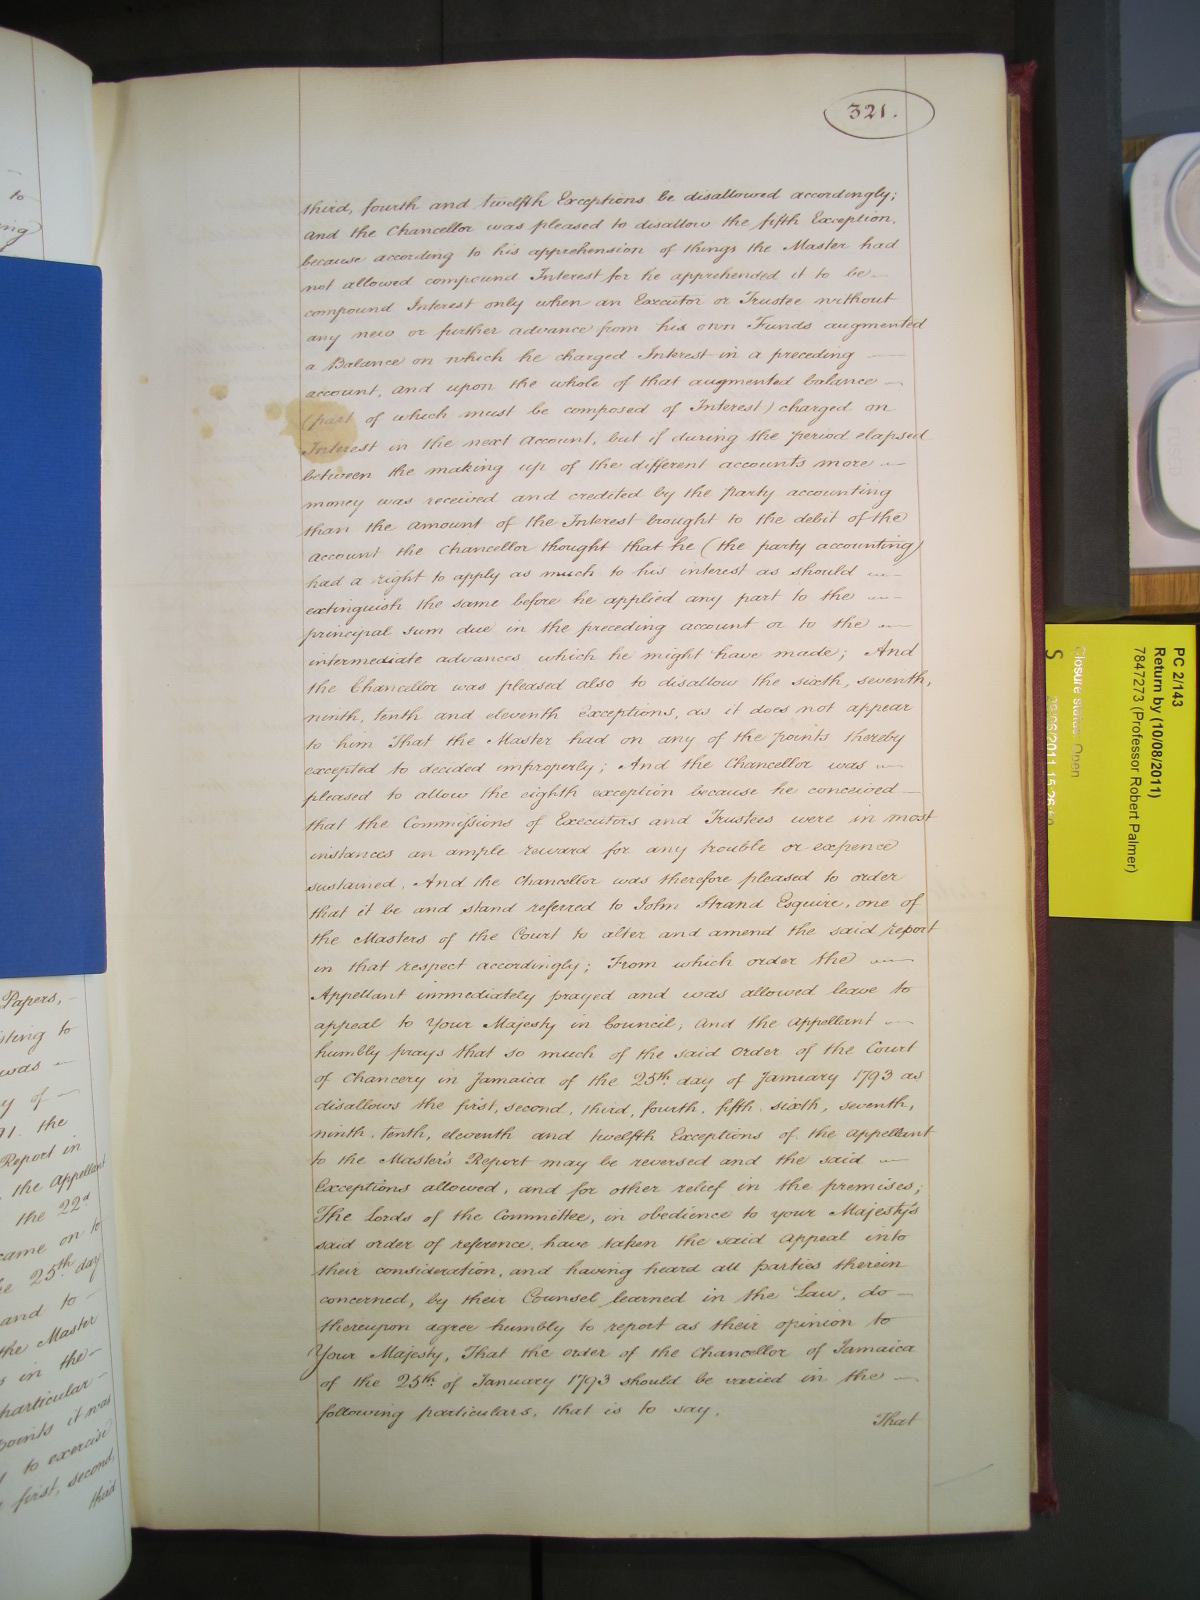 321.
third, fourth and twelfth Exceptions be disallowed accordingly;
and the Chancellor was pleased to disallow the fifth Exception,
because according to his apprehension of things the Master had
not allowed compound Interest for he apprehended it to be
compound Interest only when an Executor or Trustee without
any new or further advance from his own Funds augmented
a Balance on which he charged Interest in a preceding
account, and upon the whole of that augmented balance
(part of which must be composed of Interest) charged on
Interest in the next account, but if during the period elapsed
between the making up of the different accounts more
money was received and credited by the party accounting
than the amount of the Interest brought to the debit of the
account the Chancellor thought that he (the party accounting)
had a right to apply as much to his interest as should
extinguish the same before he applied any part to the
principal sum due in the preceding account or to the
intermediate advances which he might have made; And
the Chancellor was pleased also to disallow the sixth, seventh,
ninth, tenth and eleventh exceptions, as it does not appear
to him That the Master had on any of the points thereby
excepted to decided improperly; And the Chancellor was
pleased to allow the eighth exception because he conceived
that the Commissions of Executors and Trustees were in most
instances an ample reward for any trouble or expence
sustained. And the Chancellor was therefore pleased to order
that it be and stand referred to John Strand Esquire, one of
the Masters of the Court to alter and amend the said report
in that respect accordingly; From which order the
Appellant immediately prayed and was allowed leave to
appeal to Your Majesty in Council; And the appellant
humbly prays that so much of the said Order of the Court
of Chancery in Jamaica of the 25th day of January 1793 as
disallows the first, second, third, fourth, fifth, sixth, seventh,
ninth, tenth, eleventh and twelfth Exceptions of the appellant
to the Master's Report may be reversed and the said
Exceptions allowed, and for other relief in the premises;
The Lords of the Committee, in obedience to your Majesty's
said order of reference, have taken the said Appeal into
their consideration, and having heard all parties therein
concerned, by their Counsel learned in the Law, do
thereupon agree humbly to report as their opinion to
Your Majesty, That the order of the Chancellor of Jamaica
of the 25th of January 1793 should be varied in the
following particulars, that is to say,
That
to
Papers,
was
y of
91. the
Report in
the Appellant
the 22d
came on to
25th day
and to
the Master
in the
particular
points it was
to exercise
first, second,
third
PC 2/143
Return by (10/08/2011)
7847273 (Professor Robert Palmer)
Closure status: Open
S